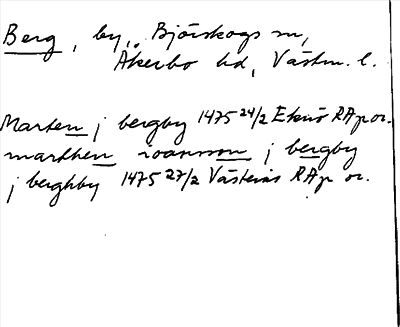 Berg, by, Björskogs sn,
Åkerbo hd, Västm. l.
Marten j bergby 1475 24/2 Ekolsö RAp or.
marthen ioansson j bergby
j berghby 1475 27/2 Västerås RAp or.